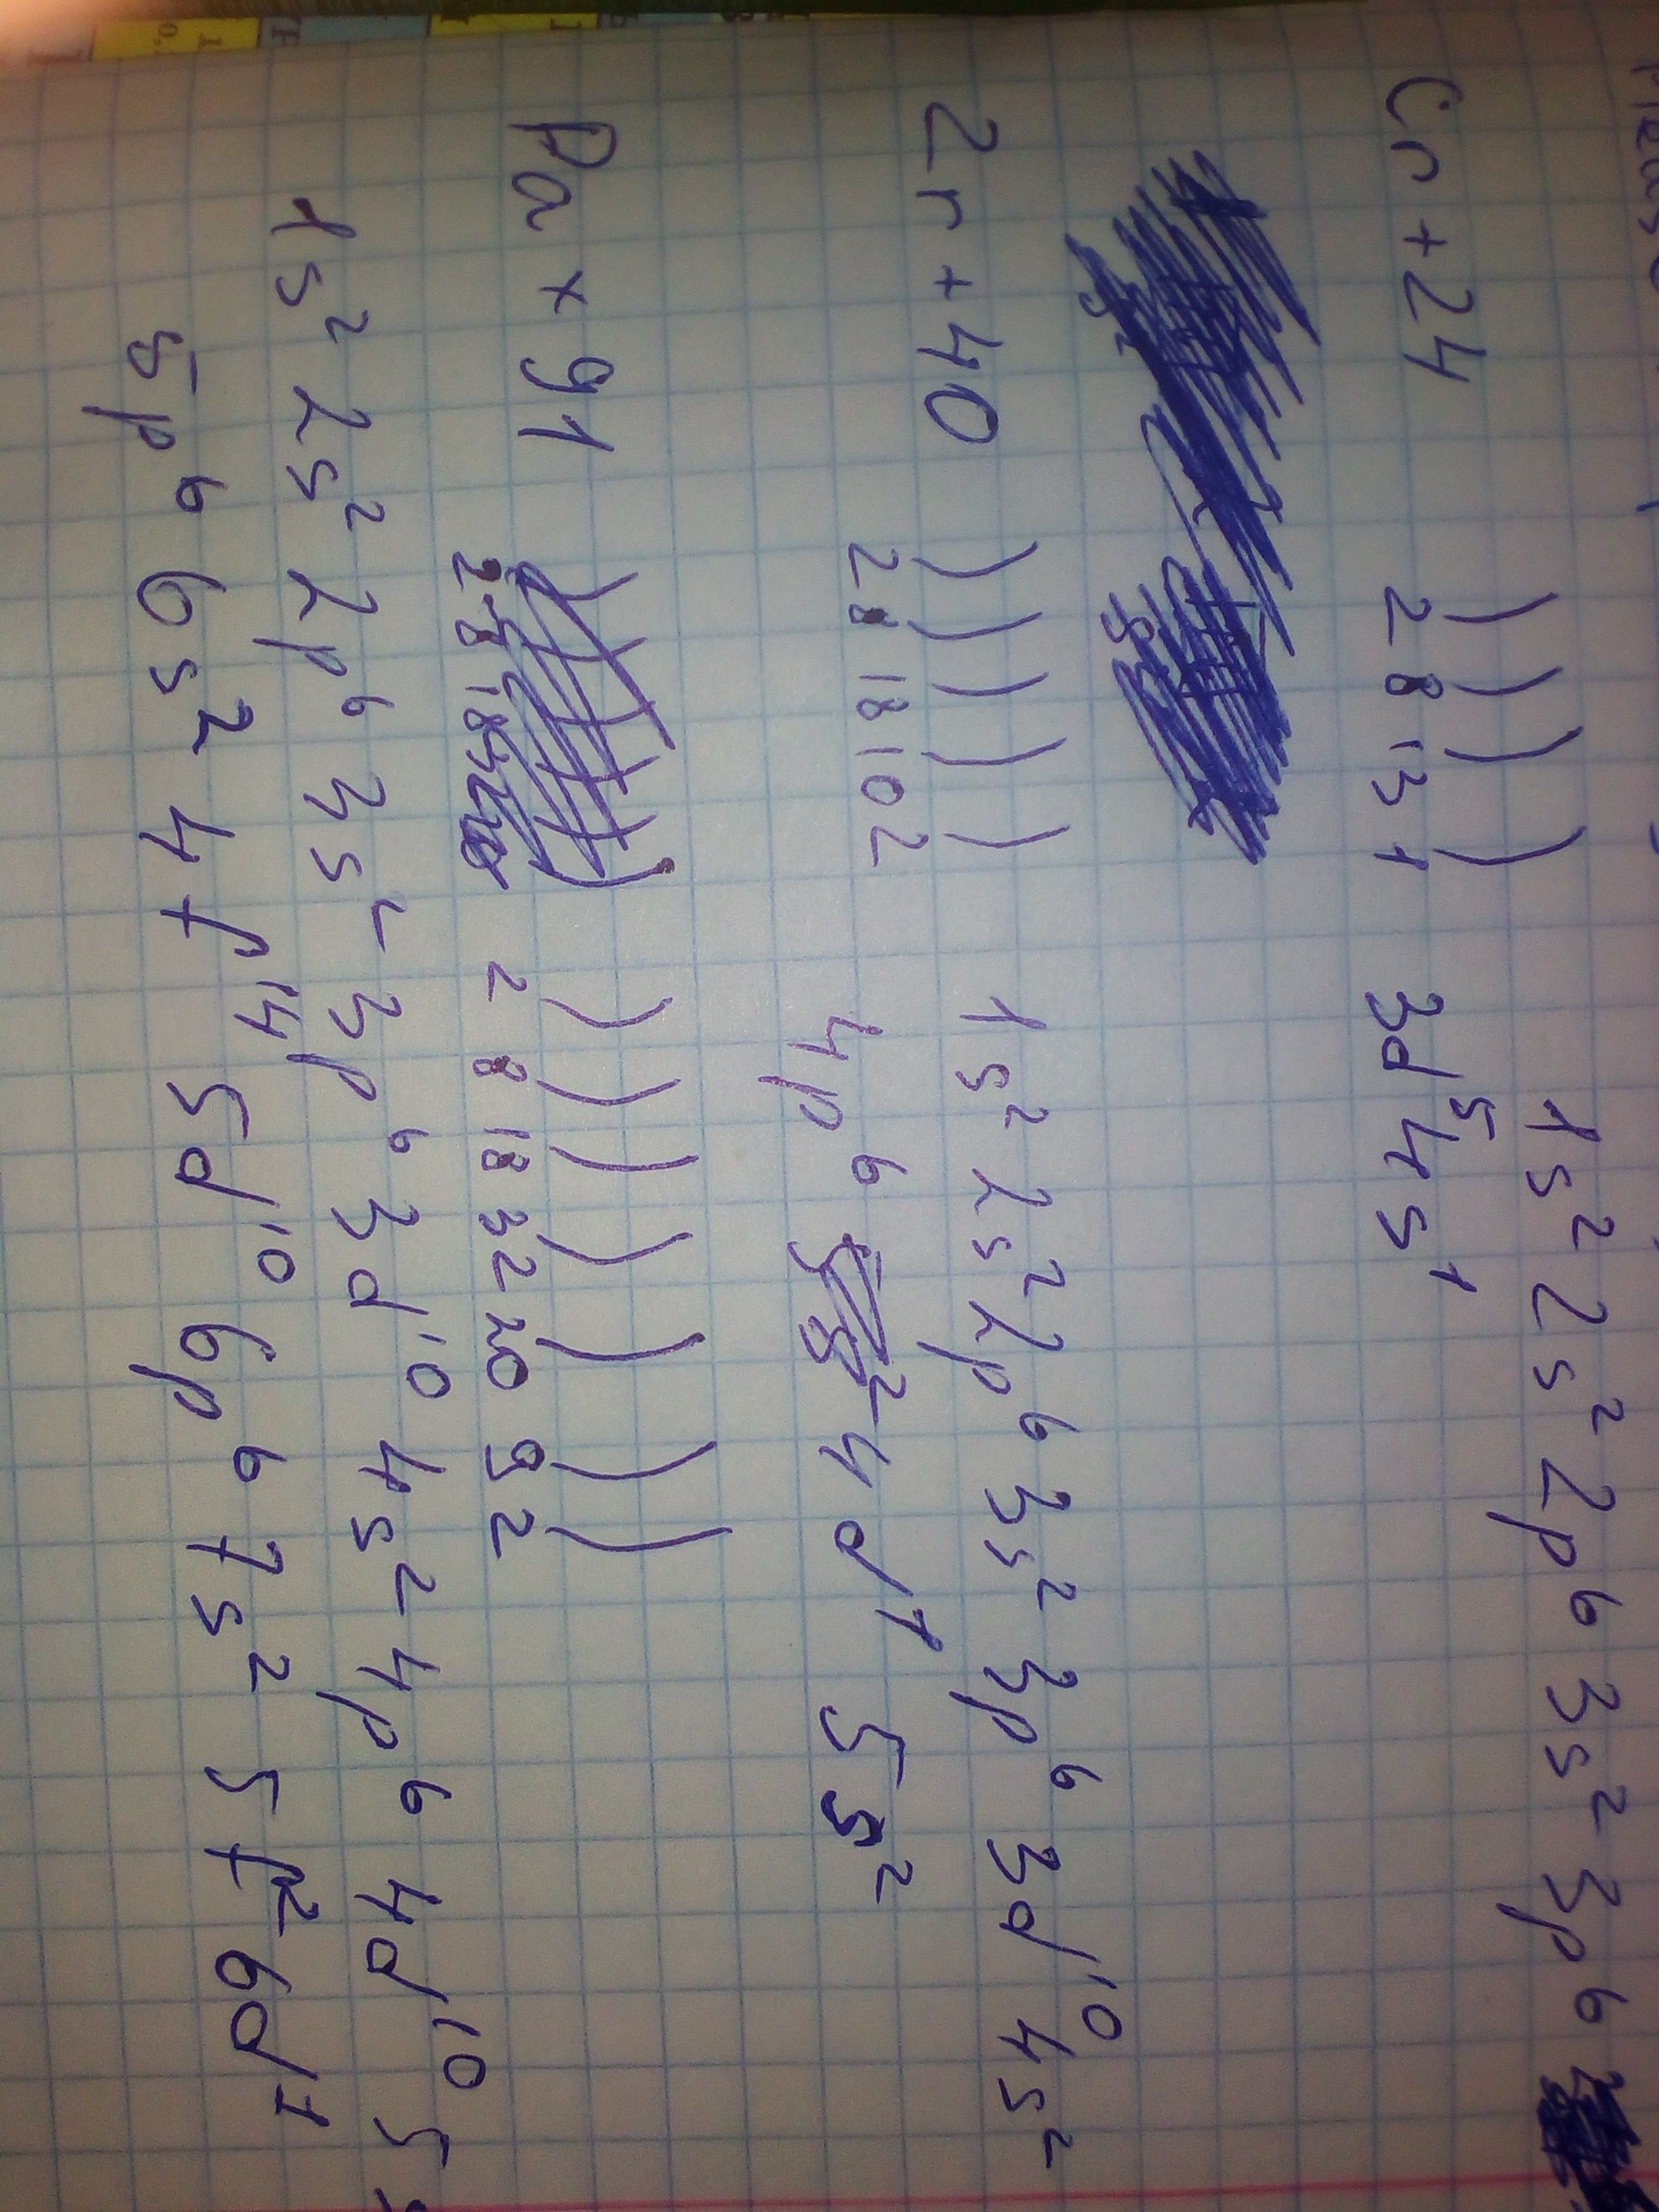 Cr +24 ) ) ) ) 1s² 2s² 2p⁶ 3s² 3p⁶
2 8 13 1 3d⁵ 4s¹
Zr +40 ) ) ) ) ) 1s² 2s² 2p⁶ 3s² 3p⁶ 3d¹⁰ 4s²
2 8 18 10 2 4p⁶ 4d¹ 5s²
Pa + 91 ) ) ) ) ) ) )
2 8 18 32 20 9 2
1s² 2s² 2p⁶ 3s² 3p⁶ 3d¹⁰ 4s² 4p⁶ 4d¹⁰ 5s
5p⁶ 6s² 4f¹⁴ 5d¹⁰ 6p⁶ 7s² 5f² 6d¹